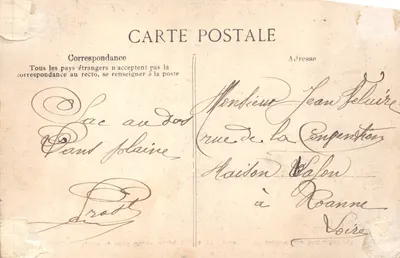 CARTE POSTALE
Correspondance
Tous les pays étrangers n'acceptent pas la
correspondance au recto, se renseigner à la poste
Sac au dos
Sans plaine
Prost
Adresse
Monsieur Jean
rue de la Convention
Maison
à Roanne
Loire